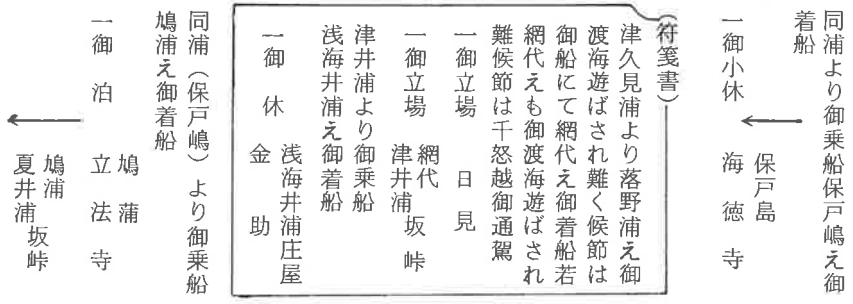 同浦より御乗船保戸嶋え御
着船
保戸島
一御小休　海徳寺
(符箋書)
津久見浦より落野浦え御
渡海遊ばされ難く候節は
御船にて網代え御着船若
網代えも御渡海遊ばされ
難候節は千怒越御通駕
一御立場　日見
一御立場　網代　津井浦　坂峠
津井浦より御乗船
浅海井浦え御着船
浅海井浦庄屋
一御休　金助
同浦（保戸嶋）より御乗船
鳩浦え御着船
鳩蒲
一御泊　立法寺
鳩浦
夏井浦　坂峠